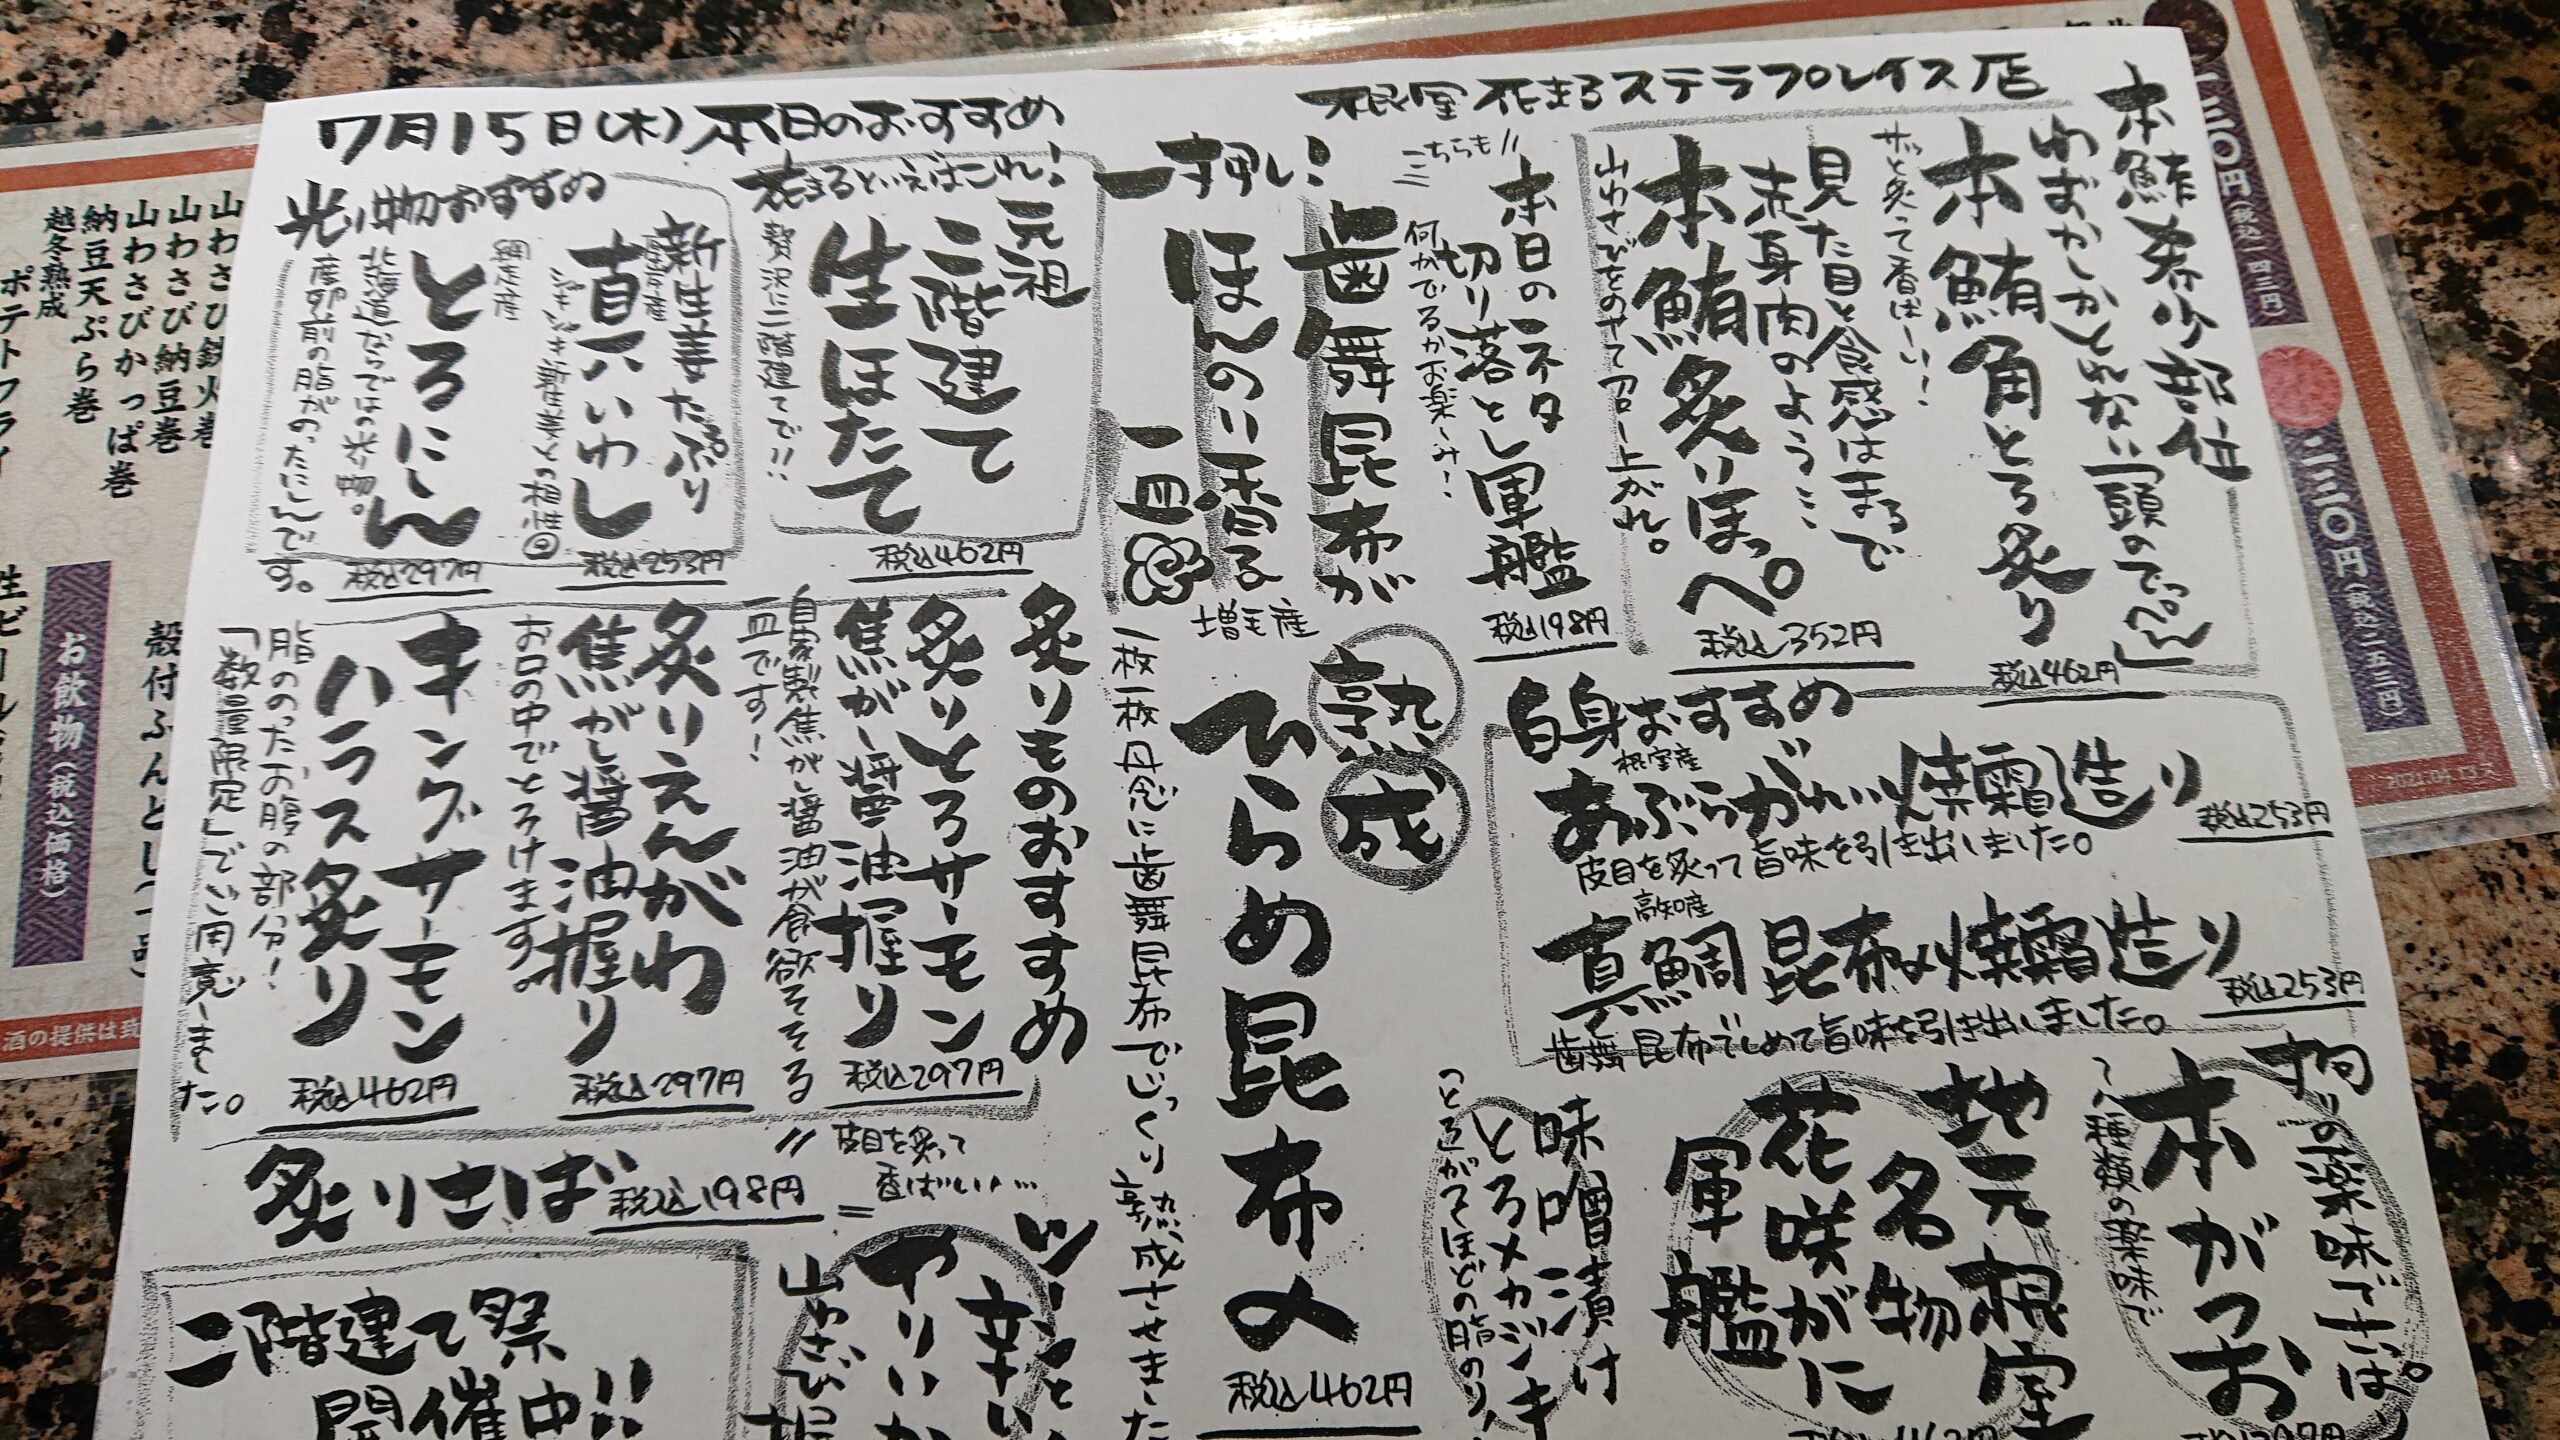 7月15日(木)本日のおすすめ
根室花まるステラプレイス店
本鮪希少部位
わずかしかとれない「頭のてっぺん」
本鮪角とろ炙り
サッと炙って香ばしい!
税込462円
見た目と食感はまるで
赤身肉のよう…
本鮪炙りほっぺ
山わさびをのせて召し上がれ。
税込352円
こちらも
本日のネタ
切り落とし軍艦
何がでるかお楽しみ!
税込198円
一押し
歯舞昆布が
ほんのり香る
一皿
増毛産
熟成
ひらめ昆布〆
一枚一枚丹念に歯舞昆布でじっくり熟成させました
税込462円
花まるといえばこれ!
元祖
二階建て
生ほたて
贅沢に二階建てで!!
税込462円
光り物おすすめ
新生姜たっぷり
真いわし
シャキシャキ新生姜との相性◎
税込253円
網走産
とろにしん
北海道ならではの光り物。
産卵前の脂がのったにしんです。
税込297円
白身おすすめ
根室産
あぶらがれい焼霜造り
税込253円
皮目を炙って旨味を引き出しました。
高知産
真鯛昆布〆焼霜造り
税込253円
歯舞昆布でしめて旨味を引き出しました。
炙りものおすすめ
炙りとろサーモン
焦がし醤油握り
自家製焦がし醤油が食欲そそる
一皿です!
税込297円
炙りえんがわ
焦がし醤油握り
お口の中でとろけます。
税込297円
キングサーモン
ハラス炙り
脂ののったお腹の部分!
「数量限定」でご用意しました。
税込462円
炙りさば
税込198円
皮目を炙って
香ばしい…
の薬味でさっぱり
本がつお
種類の薬味で
地元根室
名物
花咲がに
軍艦
味噌漬け
とろメカジキ
ツーンと
辛い
やりいか
山わさび
二階建て祭
開催中!!
山わさび鉄火巻
山わさび納豆巻
山わさびかっぱ巻
納豆天ぷら巻
越冬熟成
ポテトフライ
お飲物(税込価格)
二三〇円(税込二五三円)